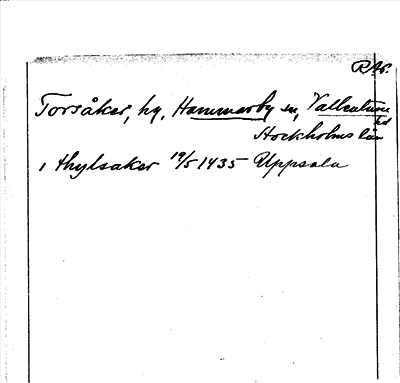 RAp.
Torsåker, hg, Hammarby sn, Vallentuna
hd
Stockholms län
i thylsaker 19/5 1435 Uppsala